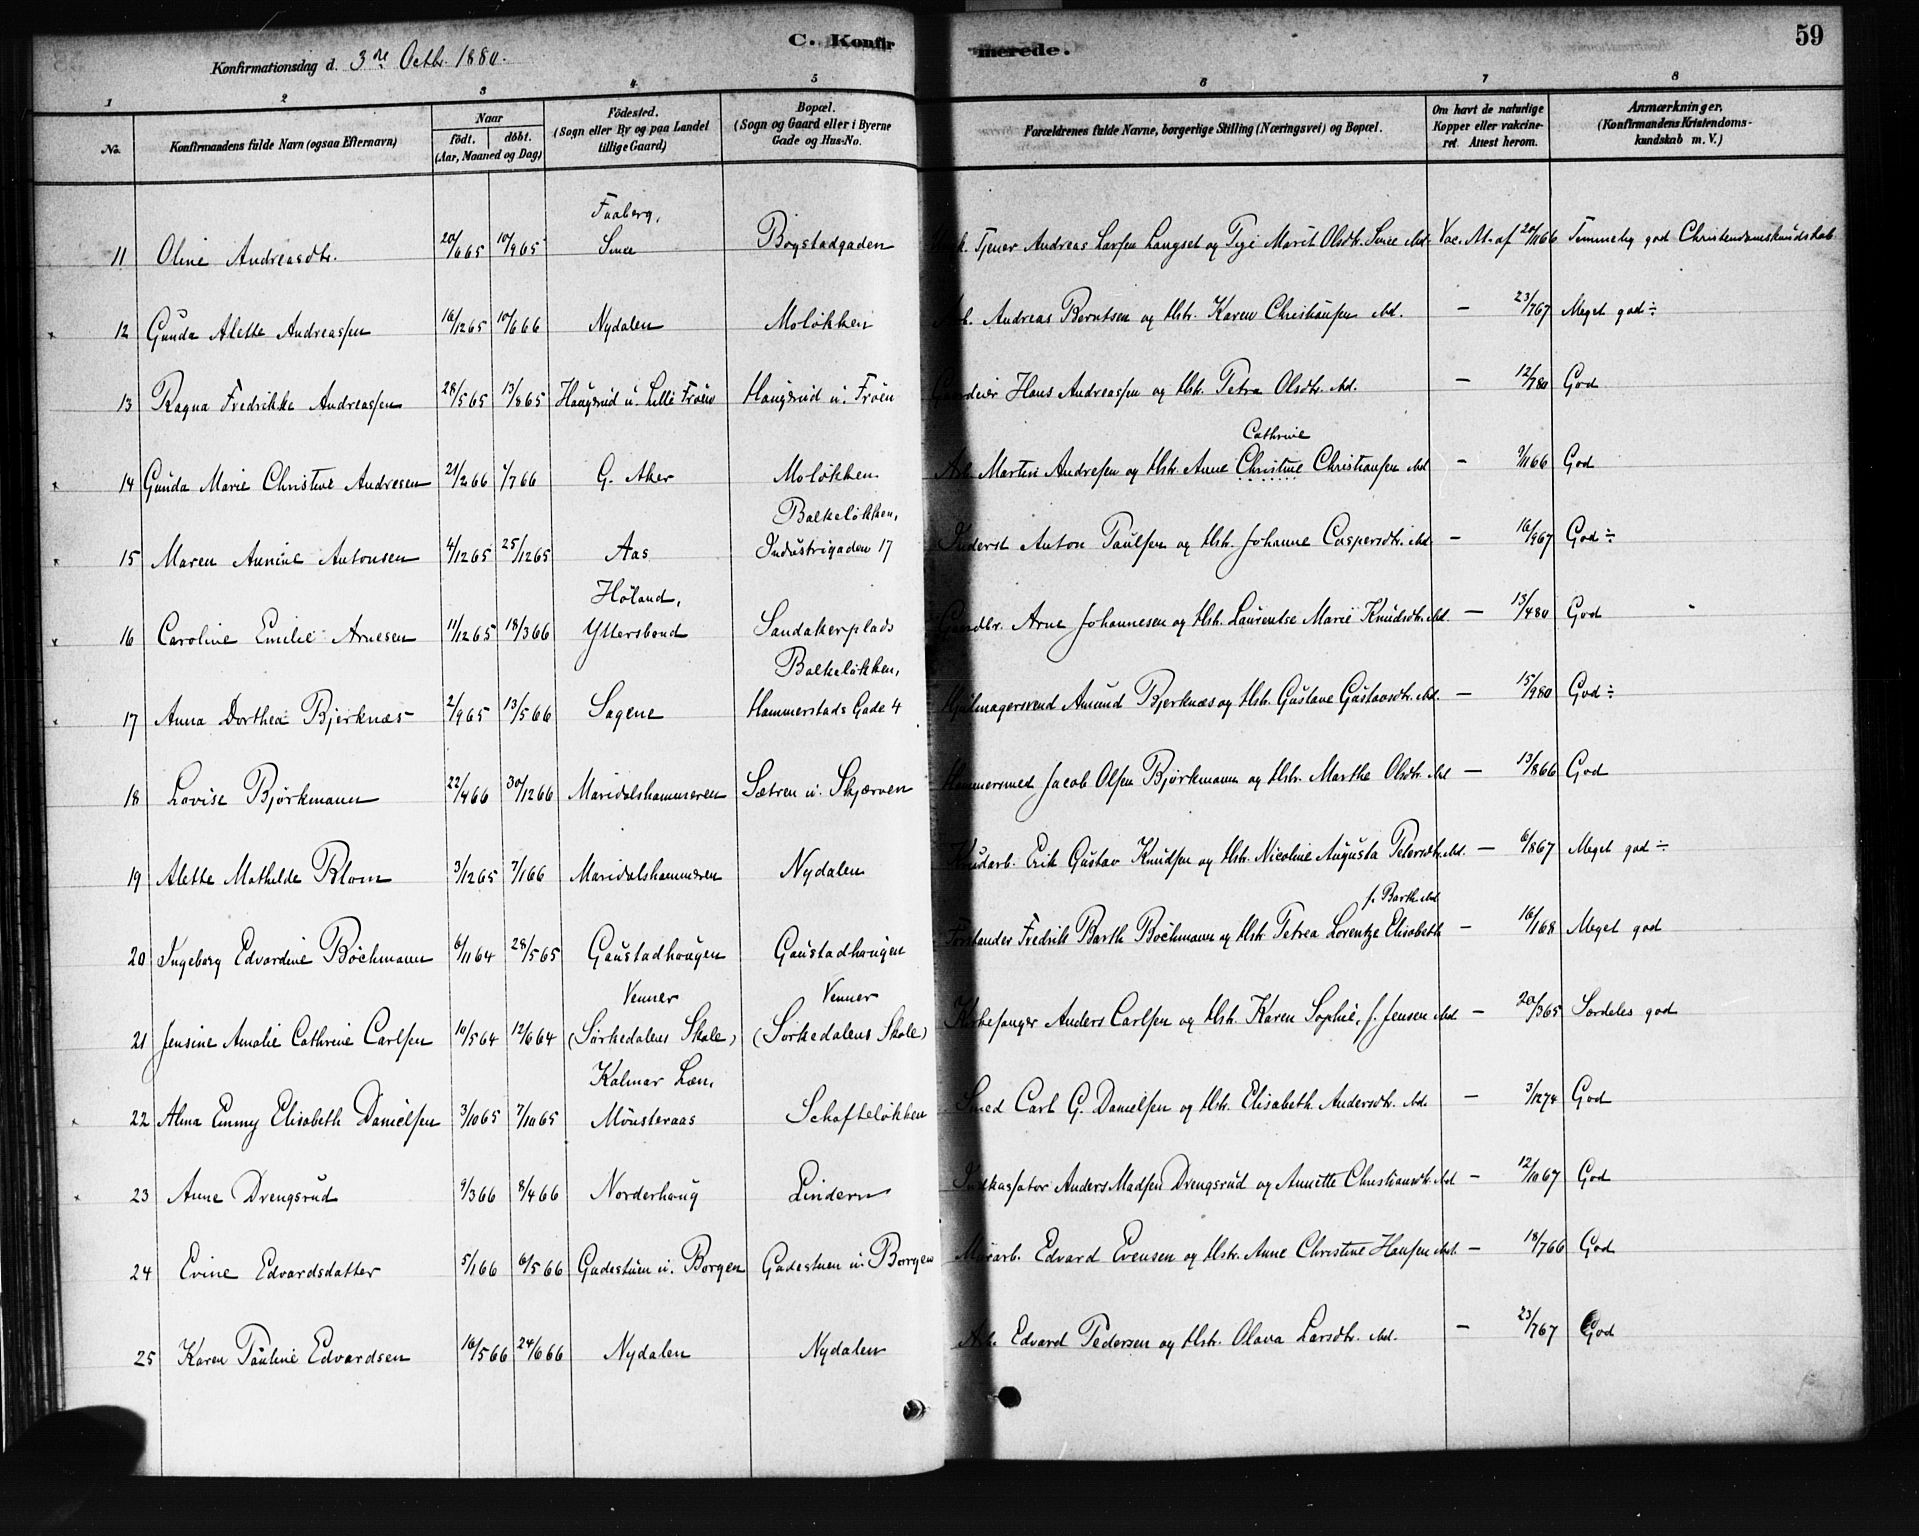 C. Konfirmerede.
59
Konfirmationsdag d. 3die Octbr. 1880.
1 2 3 4 5 6 7 8
No.
Konfirmandens fulde Navn (ogsaa Efternavn)
Naar
födt. döbt.
(Aar, Maaned og Dag)
Födested.
(Sogn eller By og paa Landet
tillige Gaard)
Bopæl.
(Sogn og Gaard eller i Byerne
Gade og Hus-No.
Forældrenes fulde Navne, borgerlige Stilling (Næringsvei) og Bopæl.
Om havt de naturlige
Kopper eller vakcine-
ret. Attest herom.
Anmærkninger.
(Konfirmandens Kristendoms-
kundskab m. V.)
Faaberg,
11 Oline Andreasdtr. 20/6 65 10/9 65 Smee Bogstadgaden Tjener Andreas Larsen Langset og Pige Marit Olsdtr. Smee Md. Vac. At. af 20/11 66 Temmelig god Christendomskundskab
12 Gunda Alette Andreassen 16/12 65 10/6 66 Nydalen Moløkken Arb. Andreas Berntsen og Hstr. Karen Christiansen Md. — 23/7 67 Meget god ÷
13 Ragna Fredrikke Andreassen 28/5 65 13/8 65 Haugerud u. Lille Frøen Haugerud u. Frøen Gaardeier Hans Andreassen og Hstr. Petra Olsdtr. Md. — 12/7 80 God
Cathrine
14 Gunda Marie Christine Andresen 21/2 66 1/7 66 G. Aker Moløkken Arb. Martin Andresen og Hstr. Anne Christine Christiansen Md — 9/11 66 God
Balkeløkken,
15 Maren Annine Antonsen 4/12 65 25/12 65 Aas Industrigaden 17 Inderst Anton Paulsen og Hstr. Johanne Caspersdtr. Md. — 16/9 67 God ÷
Høland,
16 Caroline Emilie Arnesen 11/12 65 18/3 66 Yttersbond Sandakerplads Gaardbr. Arne Johannesen og Hstr. Laurentse Marie Knudsdtr. Md. — 13/4 80 God
Balkeløkken,
17 Anna Dorthea Bjerknæs 2/9 65 13/5 66 Sagene Hammerstads Gade 4 Hjulmagersvend Amund Bjerknæs og Hstr. Gustave Gustavsdtr. Md. — 15/9 80 God ÷
18 Lovise Bjørkmann 22/4 66 30/12 66 Maridalshammeren Sætren u. Skjærven Hammersmed Jacob Olsen Bjørkmann og Hstr. Marthe Olsdtr. Md — 13/8 66 God
19 Alette Mathilde Blom 3/12 65 7/1 66 Maridalshammeren Nydalen Erik Gustav Knudsen og Hstr. Nicoline Augusta Petersdtr. Md. — 6/8 67 Meget god ÷
f. Barth Md
20 Ingeborg Edvardine Bøchmann 6/11 64 28/5 65 Gaustadhaugen Gaustadhaugen Forstander Fredrik Barth Bøchmann og Hstr Petrea Lorentze Elisabeth — 16/1 68 Meget god
Venner Venner
21 Jensine Amalie Cathrine Carlsen 10/5 64 12/6 64 (Sørkedalens Skole) (Sørkedalens Skole) Kirkesanger Anders Carlsen og Hstr. Karen Sophie, f. Jensen Md — 20/3 65 Særdeles god
Kalmar Læn,
22 Alma Emmy Elisabeth Danielsen 3/10 65 7/10 65 Mønsteraas Schafteløkken Smed Carl G. Danielsen og Hstr. Elisabeth Andersdtr. Md. — 3/12 74 God
23 Anne Drengsrud 9/3 66 8/4 66 Norderhoug Lindern Inkassator Anders Madsen Drengsrud og Annette Christiansdtr. Md — 12/10 67 God
24 Evine Edvardsdatter 5/1 66 6/5 66 Gadestuen u. Borgen Gadestuen u. Borgen Murarb. Edvard Evensen og Hstr. Anne Christine Hansen Md. — 18/7 66 God
25 Karen Pauline Edvardsen 16/5 66 24/6 66 Nydalen Nydalen Arb. Edvard Pedersen og Hstr. Olava Larsdtr. Md. — 23/7 67 God